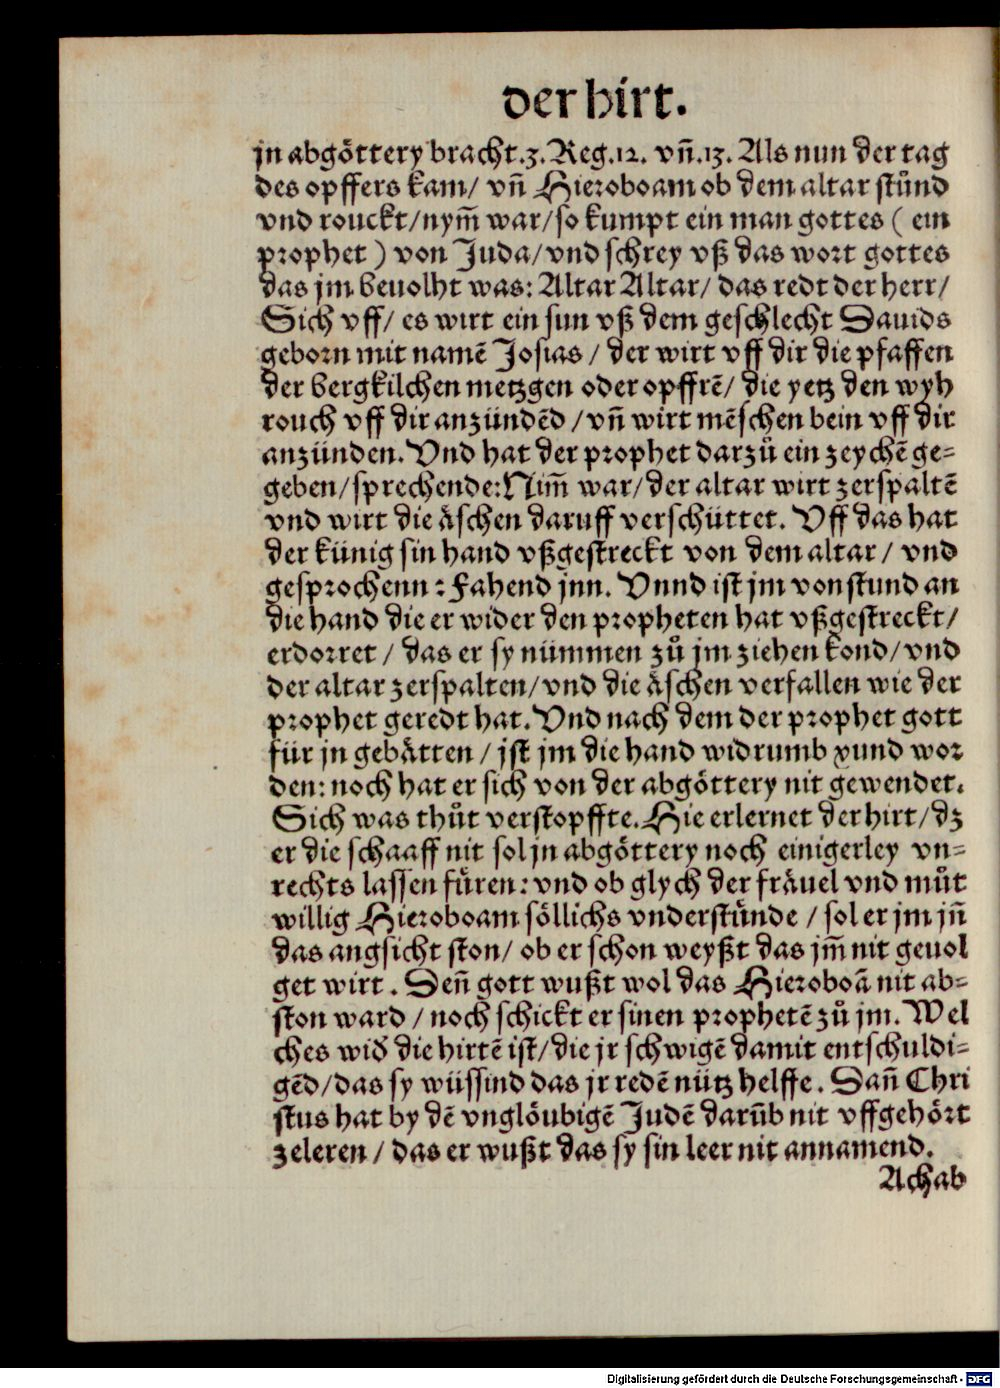 der hirt.
jn abgöttery bracht.3.Reg.12. vñ.13. Als nun der tag
des opffers kam/ vñ Hieroboam ob dem altar stůnd
vnd rouckt/nym̃ war/so kumpt ein man gottes ( ein
prophet ) von Juda/vnd schrey vß das wort gottes
das jm beuolht was: Altar Altar/ das redt der herr/
Sich vff/ es wirt ein sun vß dem geschlecht Dauids
geborn mit namẽ Josias / der wirt vff dir die pfaffen
der bergkilchen metzgen oder opffrẽ/ die yetz den wyh
rouch vff dir anzündẽd /vñ wirt mẽschen bein vff dir
anzünden. Vnd hat der prophet darzů ein zeychẽ ge-
geben/sprechende: Nim̃ war/der altar wirt zerspaltẽ
vnd wirt die äschen daruff verschüttet. Vff das hat
der künig sin hand vßgestreckt von dem altar / vnd
gesprochenn: Fahend jnn. Vnnd ist jm von stund an
die hand die er wider den propheten hat vßgestreckt/
erdorret / das er sy nümmen zů jm ziehen kond/vnd
der altar zerspalten/vnd die äschen verfallen wie der
prophet geredt hat. Vnd nach dem der prophet gott
für jn gebätten / jst jm die hand widrumb xund wor
den: noch hat er sich von der abgöttery nit gewendet.
Sich was thůt verstopffte. Hie erlernet der hirt/dz
er die schaaff nit sol jn abgöttery noch einigerley vn-
rechts lassen füren: vnd ob glych der fräuel vnd můt
willig Hieroboam söllichs vnderstünde / sol er jm jñ
das angsicht ston/ ob er schon weyßt das jm̃ nit geuol
get wirt. Deñ gott wußt wol das Hieroboã nit ab-
ston ward / noch schickt er sinen prophetẽ zů jm. Wel
ches wið die hirtẽ ist/die jr schwigẽ damit entschuldi-
gẽd/das sy wüssind das jr redẽ nütz helffe. Dañ Chri
stus hat by dẽ vnglöubigẽ Judẽ darũb nit vffgehört
zeleren / das er wußt das sy sin leer nit annamend.
Achab
Digitalisierung gefördert durch die Deutsche Forschungsgemeinschaft - DFG